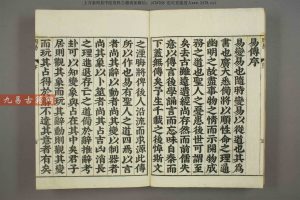 易傳序
易變易也隨時變易以從道也其爲
書也廣大悉備將以順性命之理通
幽明之故盡事物之情而示開物成
務之道也聖人之憂患後世可謂至
矣去古雖遠遺經尚存然而前儒失
意以傳言後學誦言而忘味自秦而
下蓋無傳矣予生千載之後悼斯文
之湮晦將俾後人沿流而求源此傳
所以作也易有聖人之道四焉以言
者尚其辭以動者尚其變以制器者
尚其象以卜筮者尚其占吉凶消長
之理進退存亡之道備於辭推辭考
卦可以知變象與占在其中矣君子
居則觀其象而玩其辭動則觀其變
而玩其占得於辭不達其意者有矣
九易古籍网